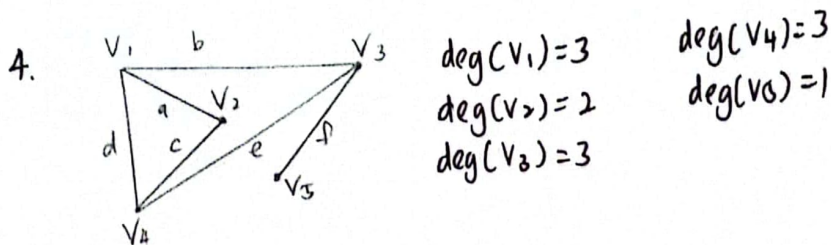 4.
V₁ b V₃
a V₂
d c e f
V₅
V₄
deg(V₁)=3
deg(V₂)=2
deg(V₃)=3
deg(V₄)=3
deg(V₅)=1